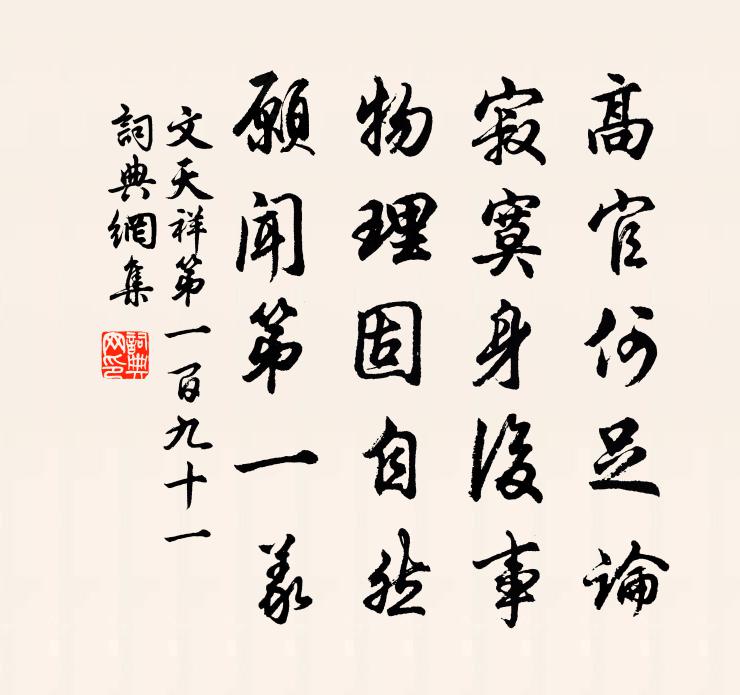 高官何足論
寂寞身後事
物理固自然
願聞第一義
文天祥第一百九十一
詞典網集
詞典網印